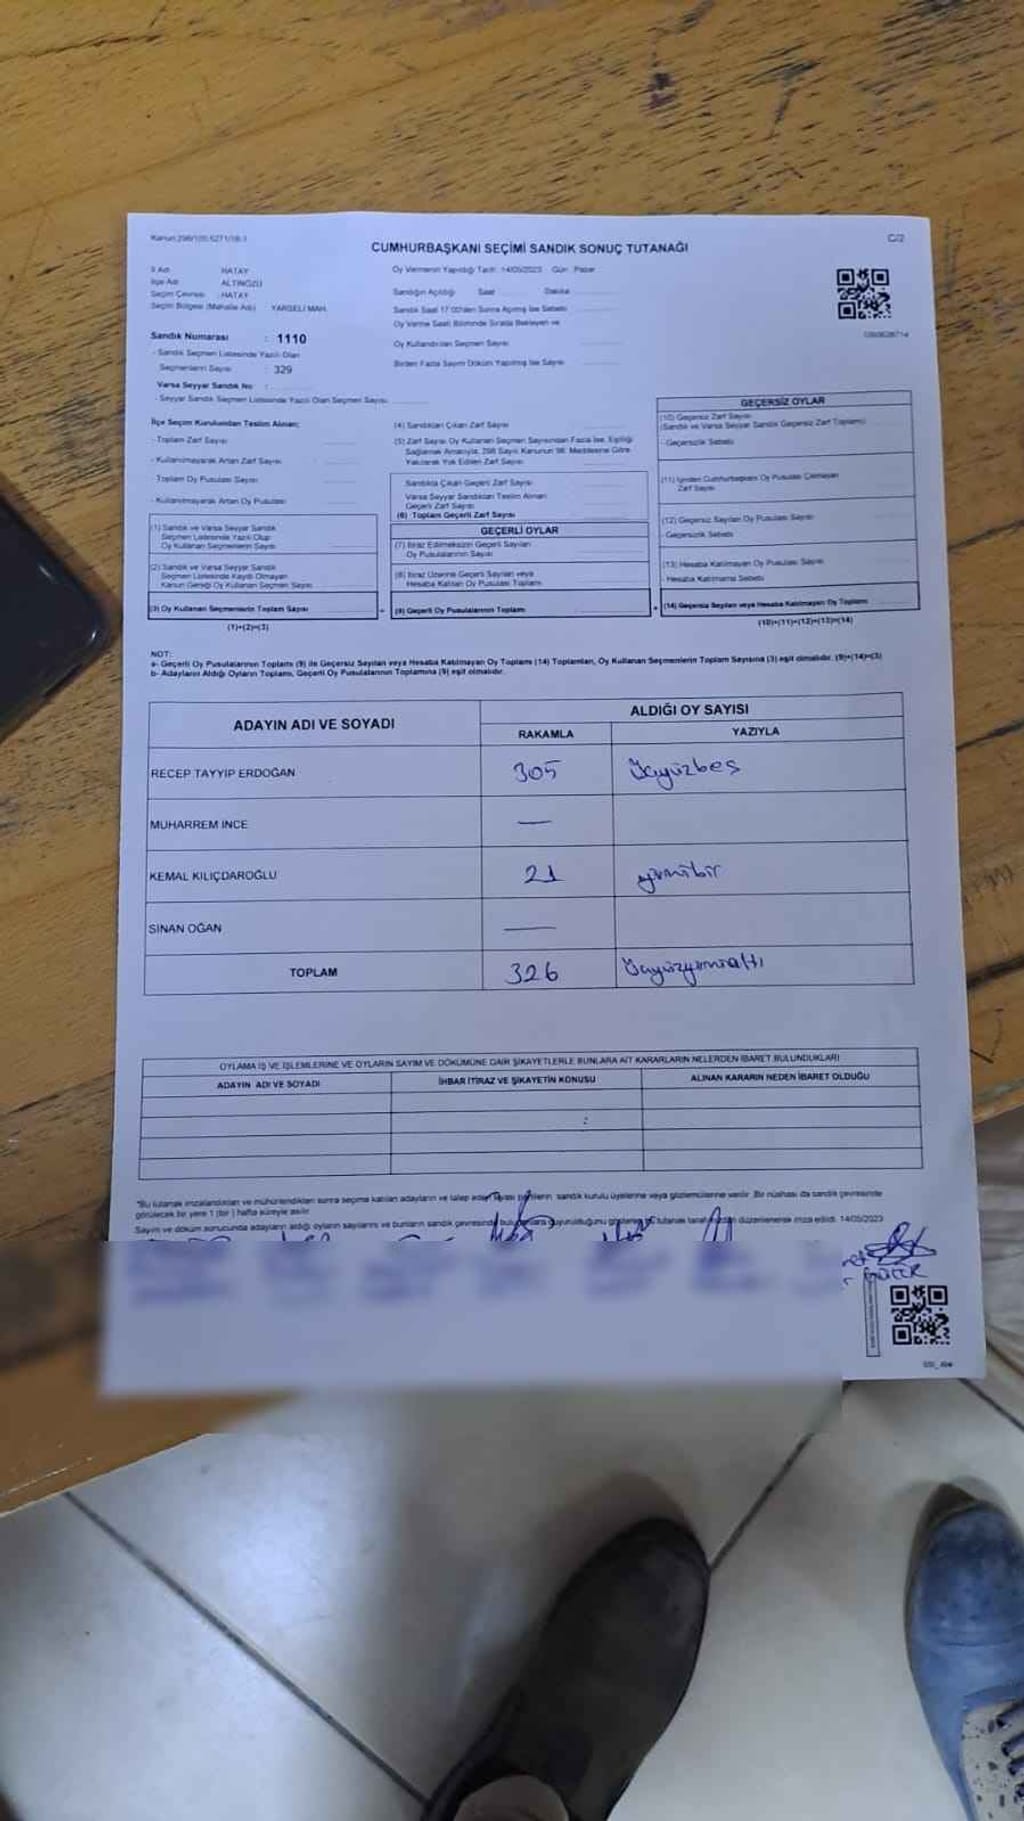 CUMHURBAŞKANI SEÇİMİ SANDIK SONUÇ TUTANAĞI
C/2
İl Adı : HATAY
İlçe Adı : ALTINÖZÜ
Seçim Çevresi : HATAY
Seçim Bölgesi (Mahalle Adı) : YARSELİ MAH.
Oy Vermenin Yapıldığı Tarih : 14/05/2023 Gün : Pazar
Sandığın Açıldığı Saat Dakika
Sandık Saat 17:00'den Sonra Açılmış İse Sebebi
Oy Verme Saati Bitiminde Sırada Bekleyen ve
Oy Kullandırılan Seçmen Sayısı
Birden Fazla Sayım Döküm Yapılmış İse Sayısı
Sandık Numarası : 1110
- Sandık Seçmen Listesinde Yazılı Olan
Seçmenlerin Sayısı : 329
Varsa Seyyar Sandık No :
- Seyyar Sandık Seçmen Listesinde Yazılı Olan Seçmen Sayısı
İlçe Seçim Kurulundan Teslim Alınan;
- Toplam Zarf Sayısı
- Kullanılmayarak Artan Zarf Sayısı
Toplam Oy Pusulası Sayısı
- Kullanılmayarak Artan Oy Pusulası
(1) Sandık ve Varsa Seyyar Sandık
Seçmen Listesinde Yazılı Olup
Oy Kullanan Seçmenlerin Sayısı
(2) Sandık ve Varsa Seyyar Sandık
Seçmen Listesinde Kaydı Olmayan
Kanun Gereği Oy Kullanan Seçmen Sayısı
(3) Oy Kullanan Seçmenlerin Toplam Sayısı
(1)+(2)=(3)
(4) Sandıktan Çıkan Zarf Sayısı
(5) Zarf Sayısı Oy Kullanan Seçmen Sayısından Fazla İse, Eşitliği
Sağlamak Amacıyla, 298 Sayılı Kanunun 98. Maddesine Göre
Yakılarak Yok Edilen Zarf Sayısı
Sandıkta Çıkan Geçerli Zarf Sayısı
Varsa Seyyar Sandıktan Teslim Alınan
Geçerli Zarf Sayısı
(6) Toplam Geçerli Zarf Sayısı
GEÇERLİ OYLAR
(7) İtiraz Edilmeksizin Geçerli Sayılan
Oy Pusulalarının Sayısı
(8) İtiraz Üzerine Geçerli Sayılan veya
Hesaba Katılan Oy Pusulası Toplamı
(9) Geçerli Oy Pusulalarının Toplamı
GEÇERSİZ OYLAR
(10) Geçersiz Zarf Sayısı
(Sandık ve Varsa Seyyar Sandık Geçersiz Zarf Toplamı)
- Geçersizlik Sebebi
(11) İçinden Cumhurbaşkanı Oy Pusulası Çıkmayan
Zarf Sayısı
(12) Geçersiz Sayılan Oy Pusulası Sayısı
- Geçersizlik Sebebi
(13) Hesaba Katılmayan Oy Pusulası Sayısı
- Hesaba Katılmama Sebebi
(14) Geçersiz Sayılan veya Hesaba Katılmayan Oy Toplamı
(10)+(11)+(12)+(13)=(14)
NOT:
a- Geçerli Oy Pusulalarının Toplamı (9) ile Geçersiz Sayılan veya Hesaba Katılmayan Oy Toplamı (14) Toplamları, Oy Kullanan Seçmenlerin Toplam Sayısına (3) eşit olmalıdır. (9)+(14)=(3)
b- Adayların Aldığı Oyların Toplamı, Geçerli Oy Pusulalarının Toplamına (9) eşit olmalıdır.
ADAYIN ADI VE SOYADI
ALDIĞI OY SAYISI
RAKAMLA YAZIYLA
RECEP TAYYİP ERDOĞAN 305 Üçyüzbeş
MUHARREM İNCE —
KEMAL KILIÇDAROĞLU 21 yirmibir
SİNAN OĞAN —
TOPLAM 326 Üçyüzyirmialtı
OYLAMA İŞ VE İŞLEMLERİNE VE OYLARIN SAYIM VE DÖKÜMÜNE DAİR ŞİKAYETLERLE BUNLARA AİT KARARLARIN NELERDEN İBARET BULUNDUKLARI
ADAYIN ADI VE SOYADI İHBAR İTİRAZ VE ŞİKAYETİN KONUSU ALINAN KARARIN NEDEN İBARET OLDUĞU